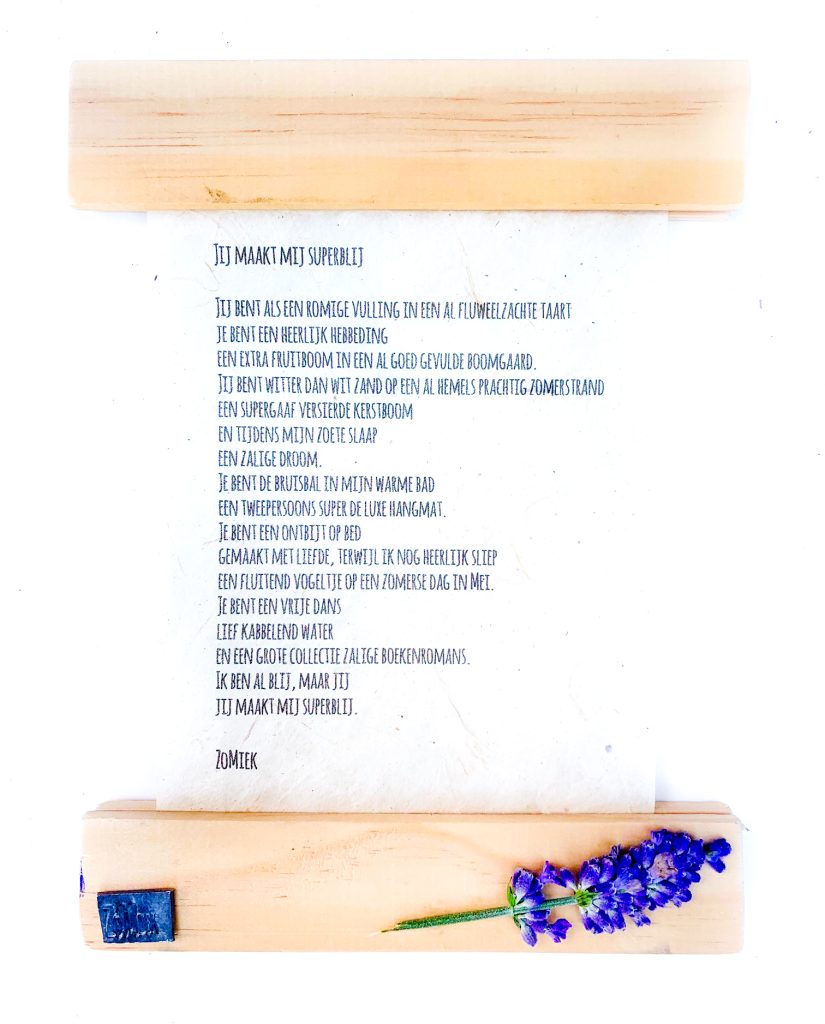 Jij maakt mij superblij
Jij bent als een romige vulling in een al fluweelzachte taart
je bent een heerlijk hebbeding
een extra fruitboom in een al goed gevulde boomgaard.
Jij bent witter dan wit zand op een al hemels prachtig zomerstrand
een supergaaf versierde kerstboom
en tijdens mijn zoete slaap
een zalige droom.
Je bent de bruisbal in mijn warme bad
een tweepersoons super de luxe hangmat.
Je bent een ontbijt op bed
gemaakt met liefde, terwijl ik nog heerlijk sliep
een fluitend vogeltje op een zomerse dag in Mei.
Je bent een vrije dans
lief kabbelend water
en een grote collectie zalige boekenromans.
Ik ben al blij, maar jij
jij maakt mij superblij.
ZoMiek